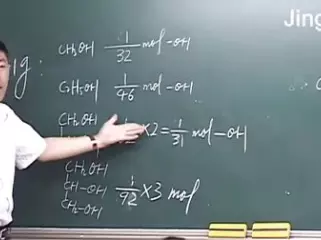 Jing
1g:
CH₃OH 1/32 mol-OH
C₂H₅OH 1/46 mol-OH
CH₂OH
×2=1/31 mol-OH
CH₂OH
CH-OH 1/92 ×3 mol
CH₂-OH